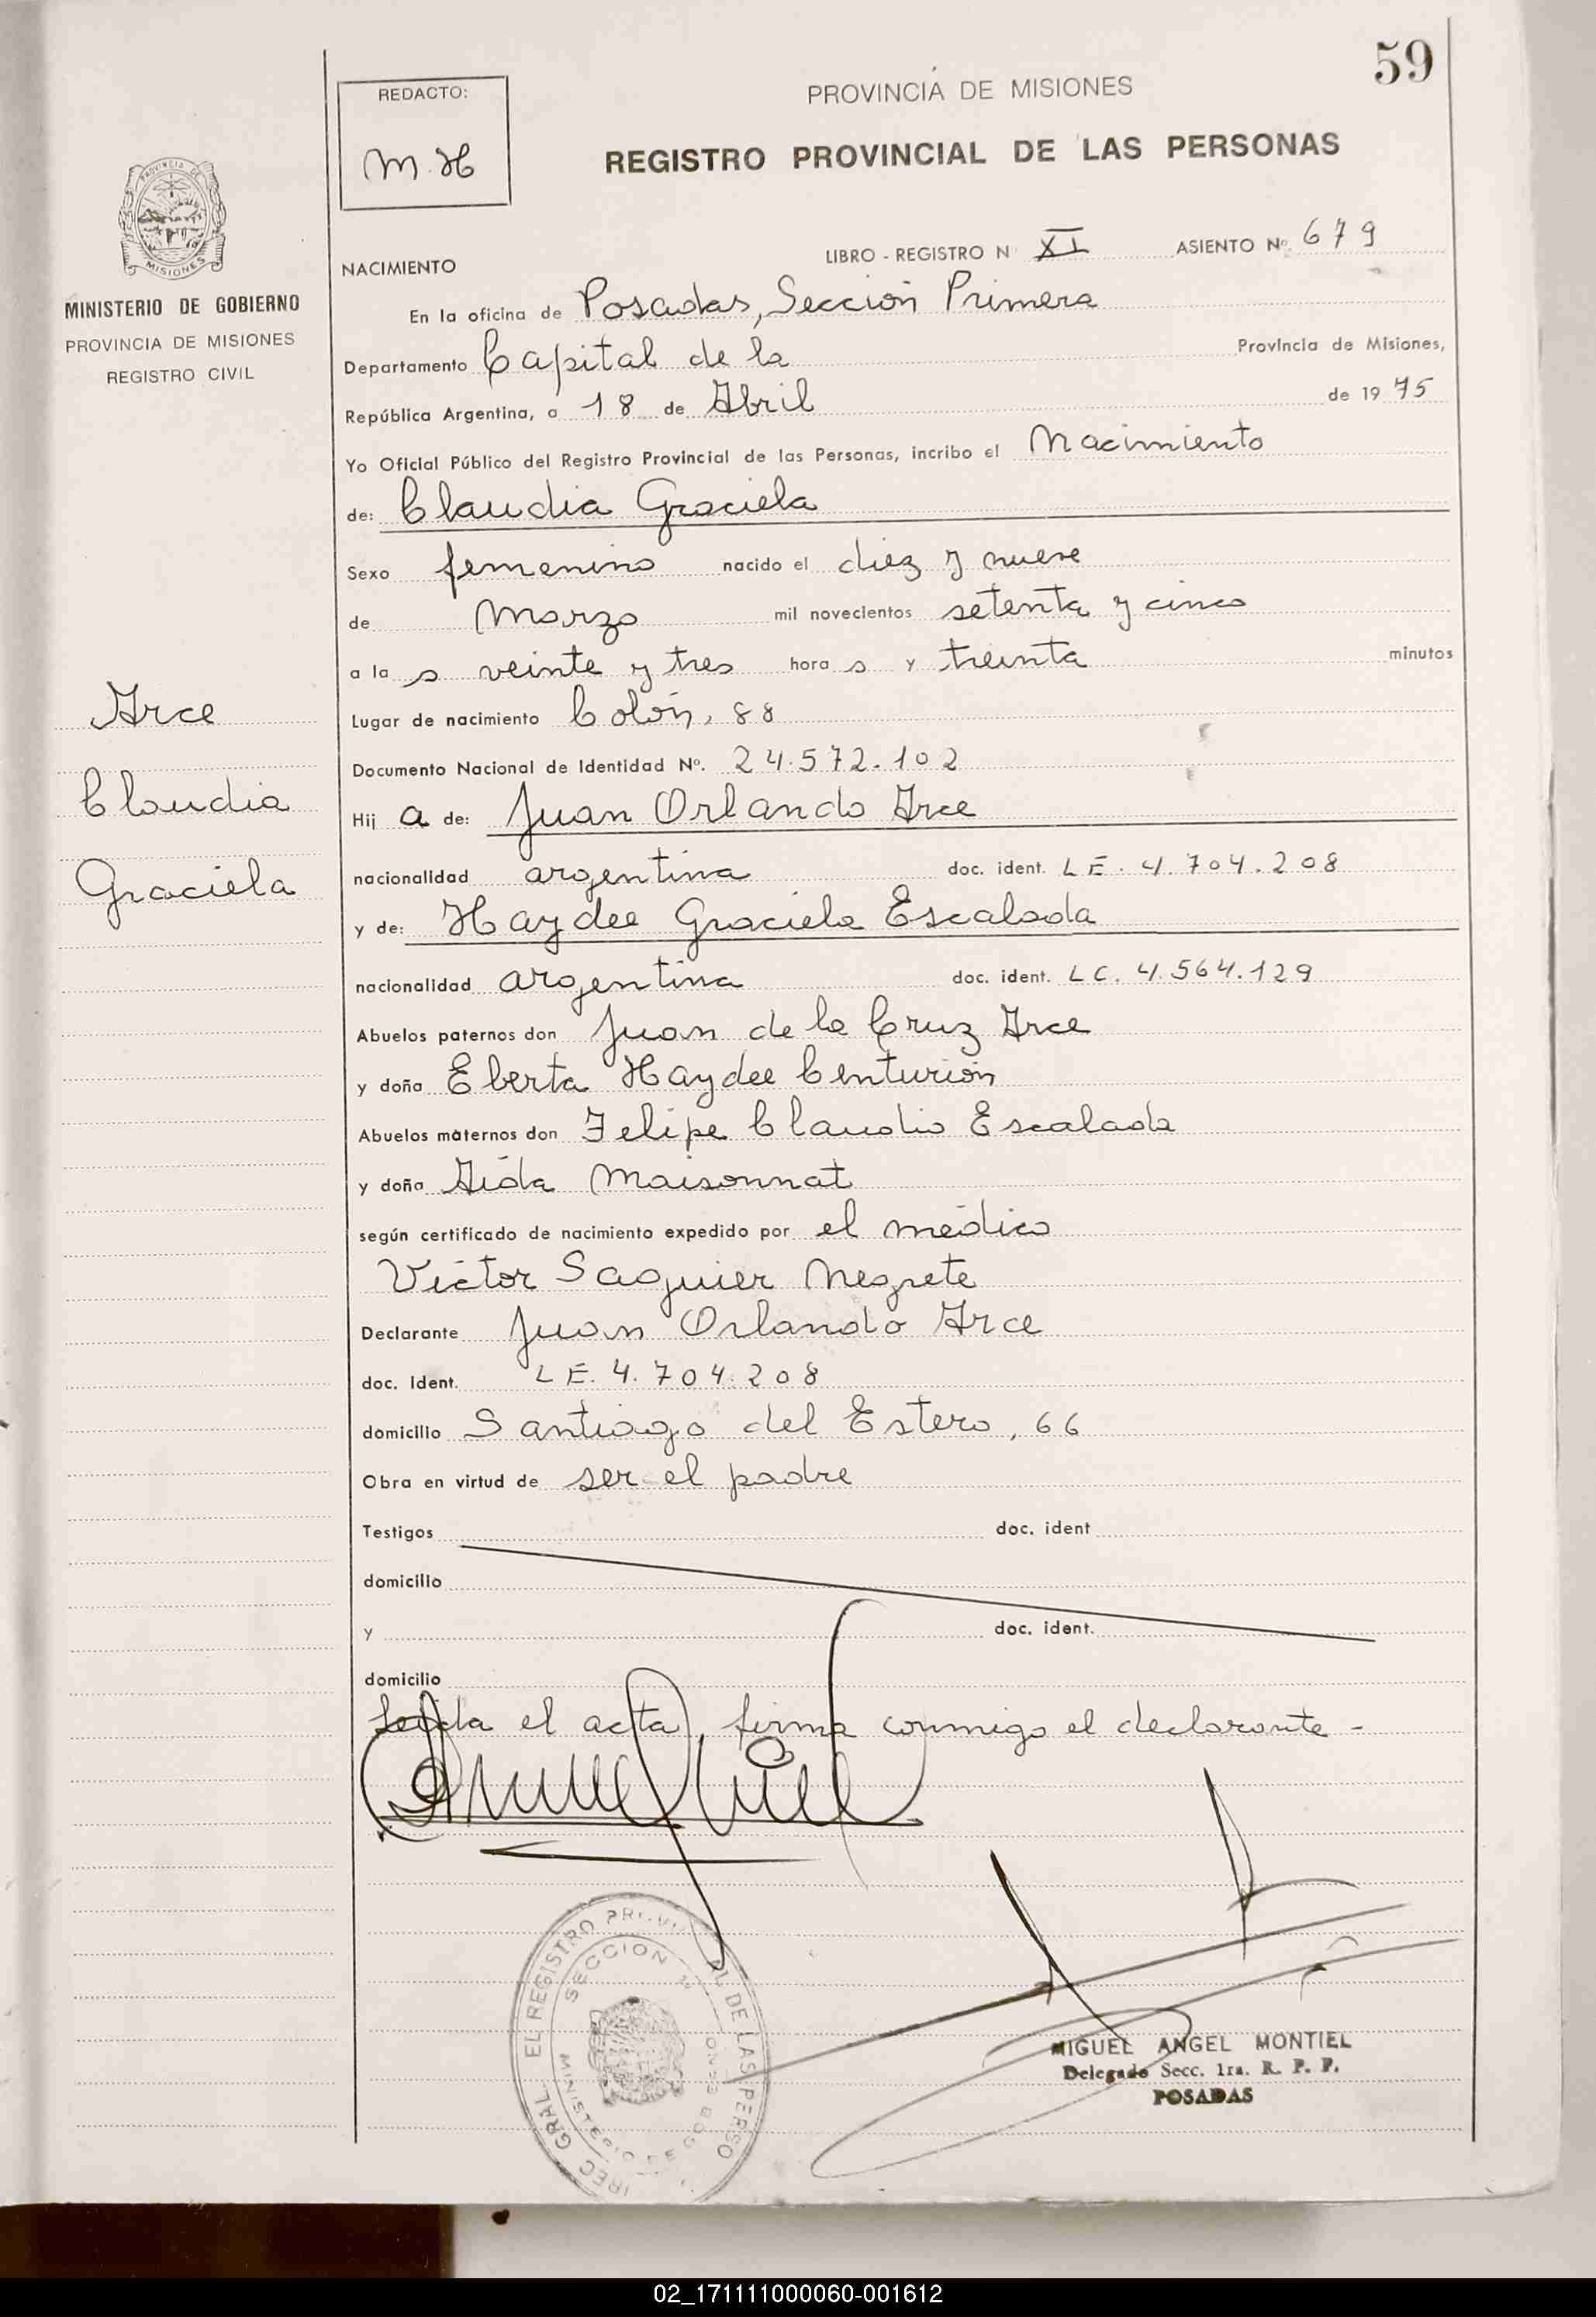 59
REDACTO:
M.H
PROVINCIA DE MISIONES
REGISTRO PROVINCIAL DE LAS PERSONAS
PROVINCIA DE
MISIONES
MINISTERIO DE GOBIERNO
PROVINCIA DE MISIONES
REGISTRO CIVIL
LIBRO - REGISTRO N XI ASIENTO Nº. 679
NACIMIENTO
En la oficina de Posadas, Sección Primera
Departamento Capital de la Provincia de Misiones,
República Argentina, a 18 de Abril de 1975
Yo Oficial Público del Registro Provincial de las Personas, incribo el Nacimiento
de: Claudia Graciela
Sexo femenino nacido el diez y nueve
de Marzo mil novecientos setenta y cinco
a la s veinte y tres hora s y treinta minutos
Lugar de nacimiento Colón, 88
Documento Nacional de Identidad Nº. 24.572.102
Hij a de: Juan Orlando Arce
nacionalidad argentina doc. ident. LE. 4.704.208
y de: Haydee Graciela Escalada
nacionalidad argentina doc. ident. LC. 4.564.129
Abuelos paternos don Juan de la Cruz Arce
y doña Eberta Haydee Centurión
Abuelos maternos don Felipe Claudio Escalada
y doña Aida Maisonnat
según certificado de nacimiento expedido por el médico
Víctor Saguier Negrete
Declarante Juan Orlando Arce
doc. Ident. LE. 4.704.208
domicilio Santiago del Estero, 66
Obra en virtud de ser el padre
Testigos doc. ident
domicilio
y doc. ident.
domicilio
Leída el acta, firma conmigo el declarante -
Arce
Claudia
Graciela
IREC GRAL. EL REGISTRO PROV L DE LAS PERSO
SECCION 1ª
MINISTERIO DE GOBIERNO
MIGUEL ANGEL MONTIEL
Delegado Secc. 1ra. R. P. P.
POSADAS
02_171111000060-001612